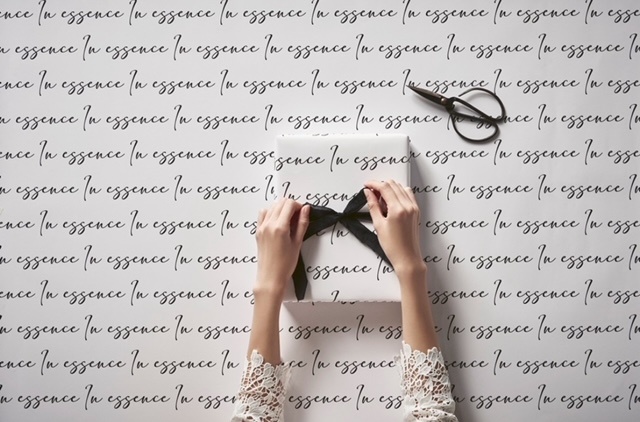 essence In essence In essence In essence In essence In essence In essence In essence
In essence In essence In essence In essence In essence In essence In essence In
essence In essence In essence In essence In essence In essence In essence In essence
In essence In essence In essence In essence In essence In essence In essence In
essence In essence In essence In essence In essence In essence In essence
In essence In essence In essence In essence In essence In essence In
essence In essence In essence In essence In essence In essence
In essence In essence In essence essence In essence In essence In
essence In essence In essence In essence In essence In essence
In essence In essence In essence In essence In essence In essence In
essence In essence In essence In essence In essence In essence In essence
In essence In essence In essence In essence In essence In essence In